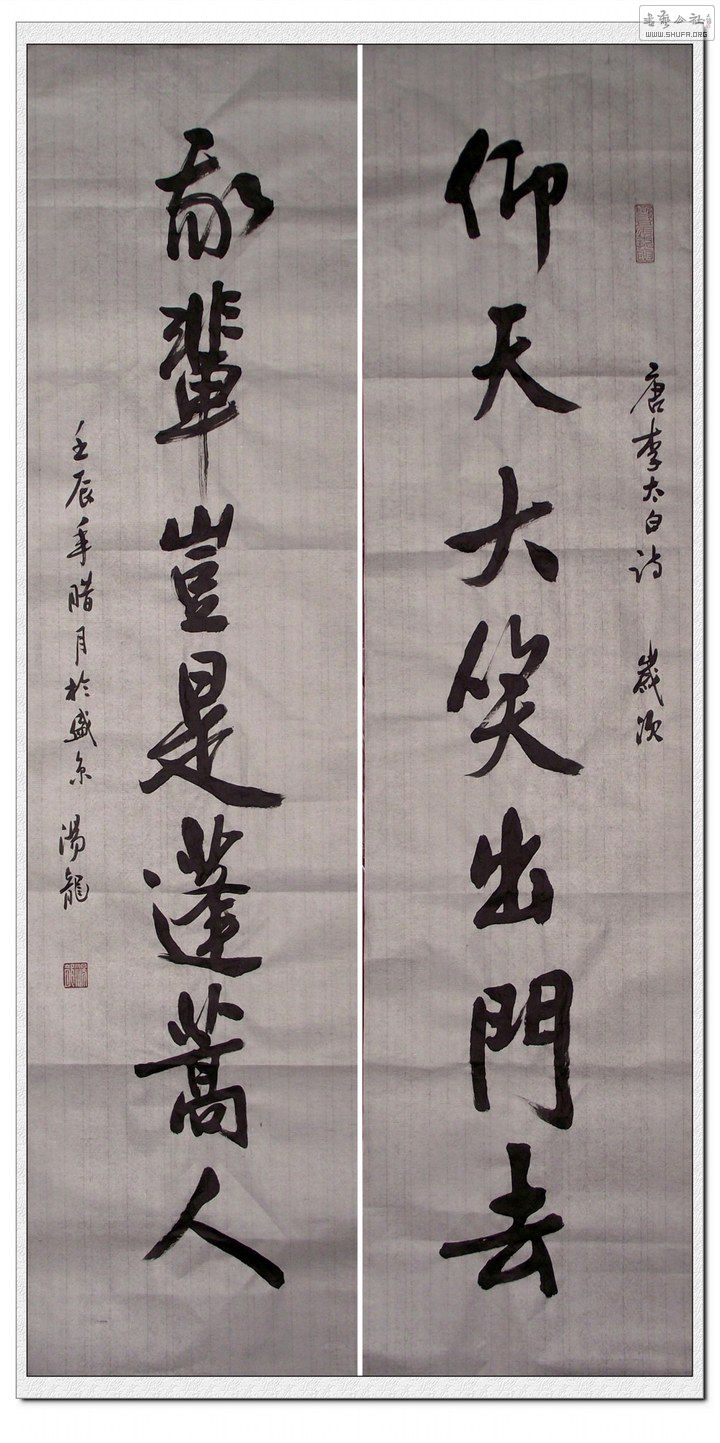 唐李太白诗 歲次
仰天大笑出門去
我輩豈是蓬蒿人
壬辰年腊月於盛京 湯龍
书艺公社
WWW.SHUFA.ORG